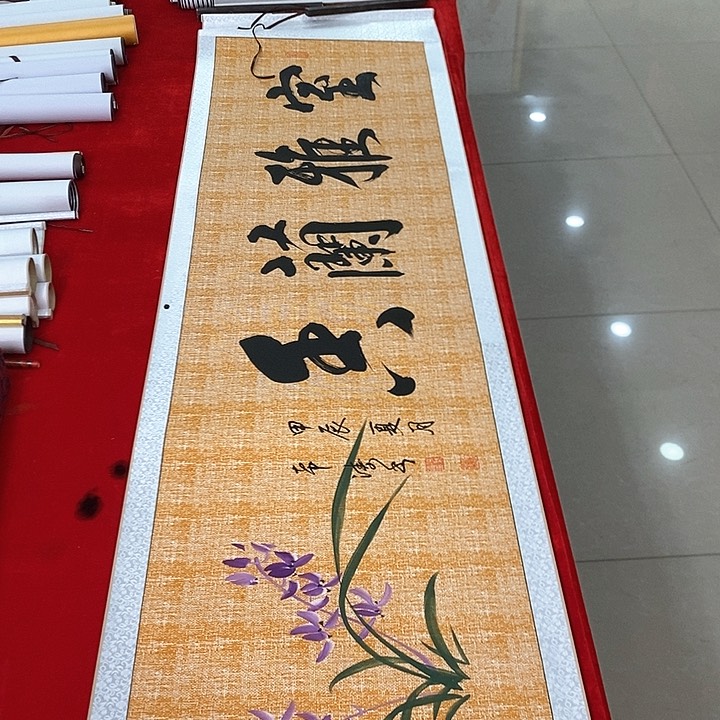 室雅蘭香
甲辰夏月